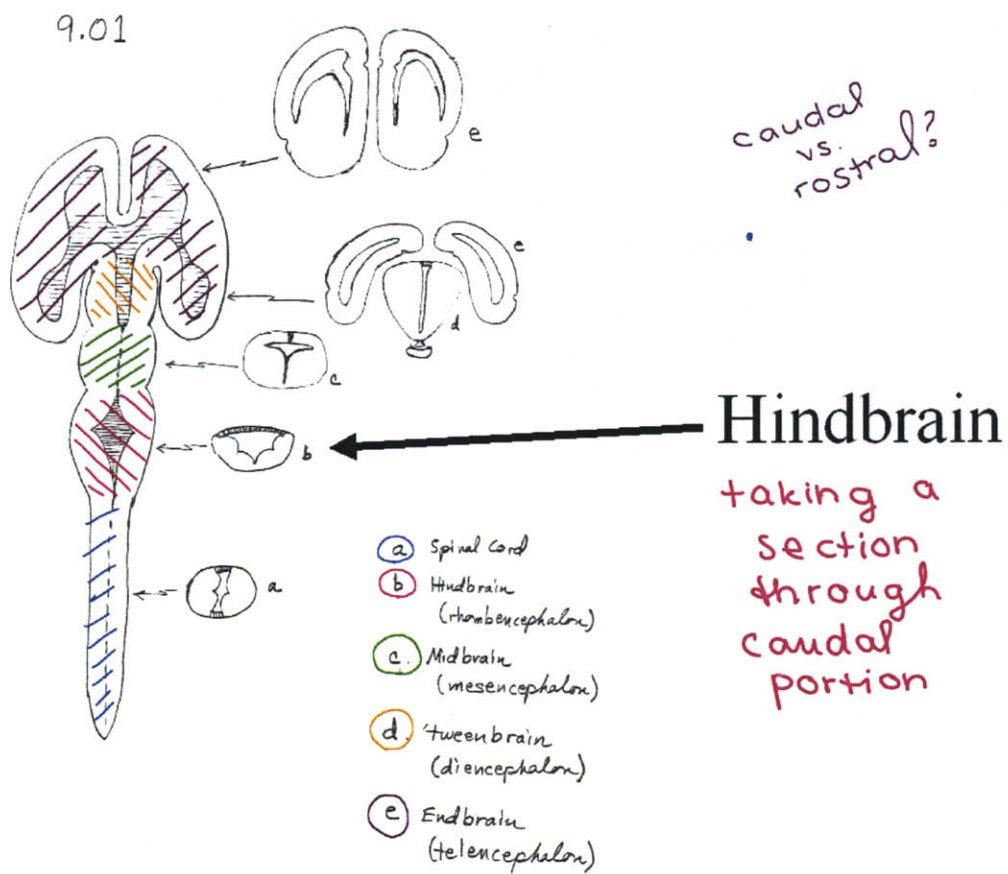 9.01
e
caudal
vs.
rostral?
e
d
c
b
Hindbrain
taking a
section
through
caudal
portion
a
a Spinal Cord
b Hindbrain
(rhombencephalon)
c. Midbrain
(mesencephalon)
d. 'tweenbrain
(diencephalon)
e Endbrain
(telencephalon)